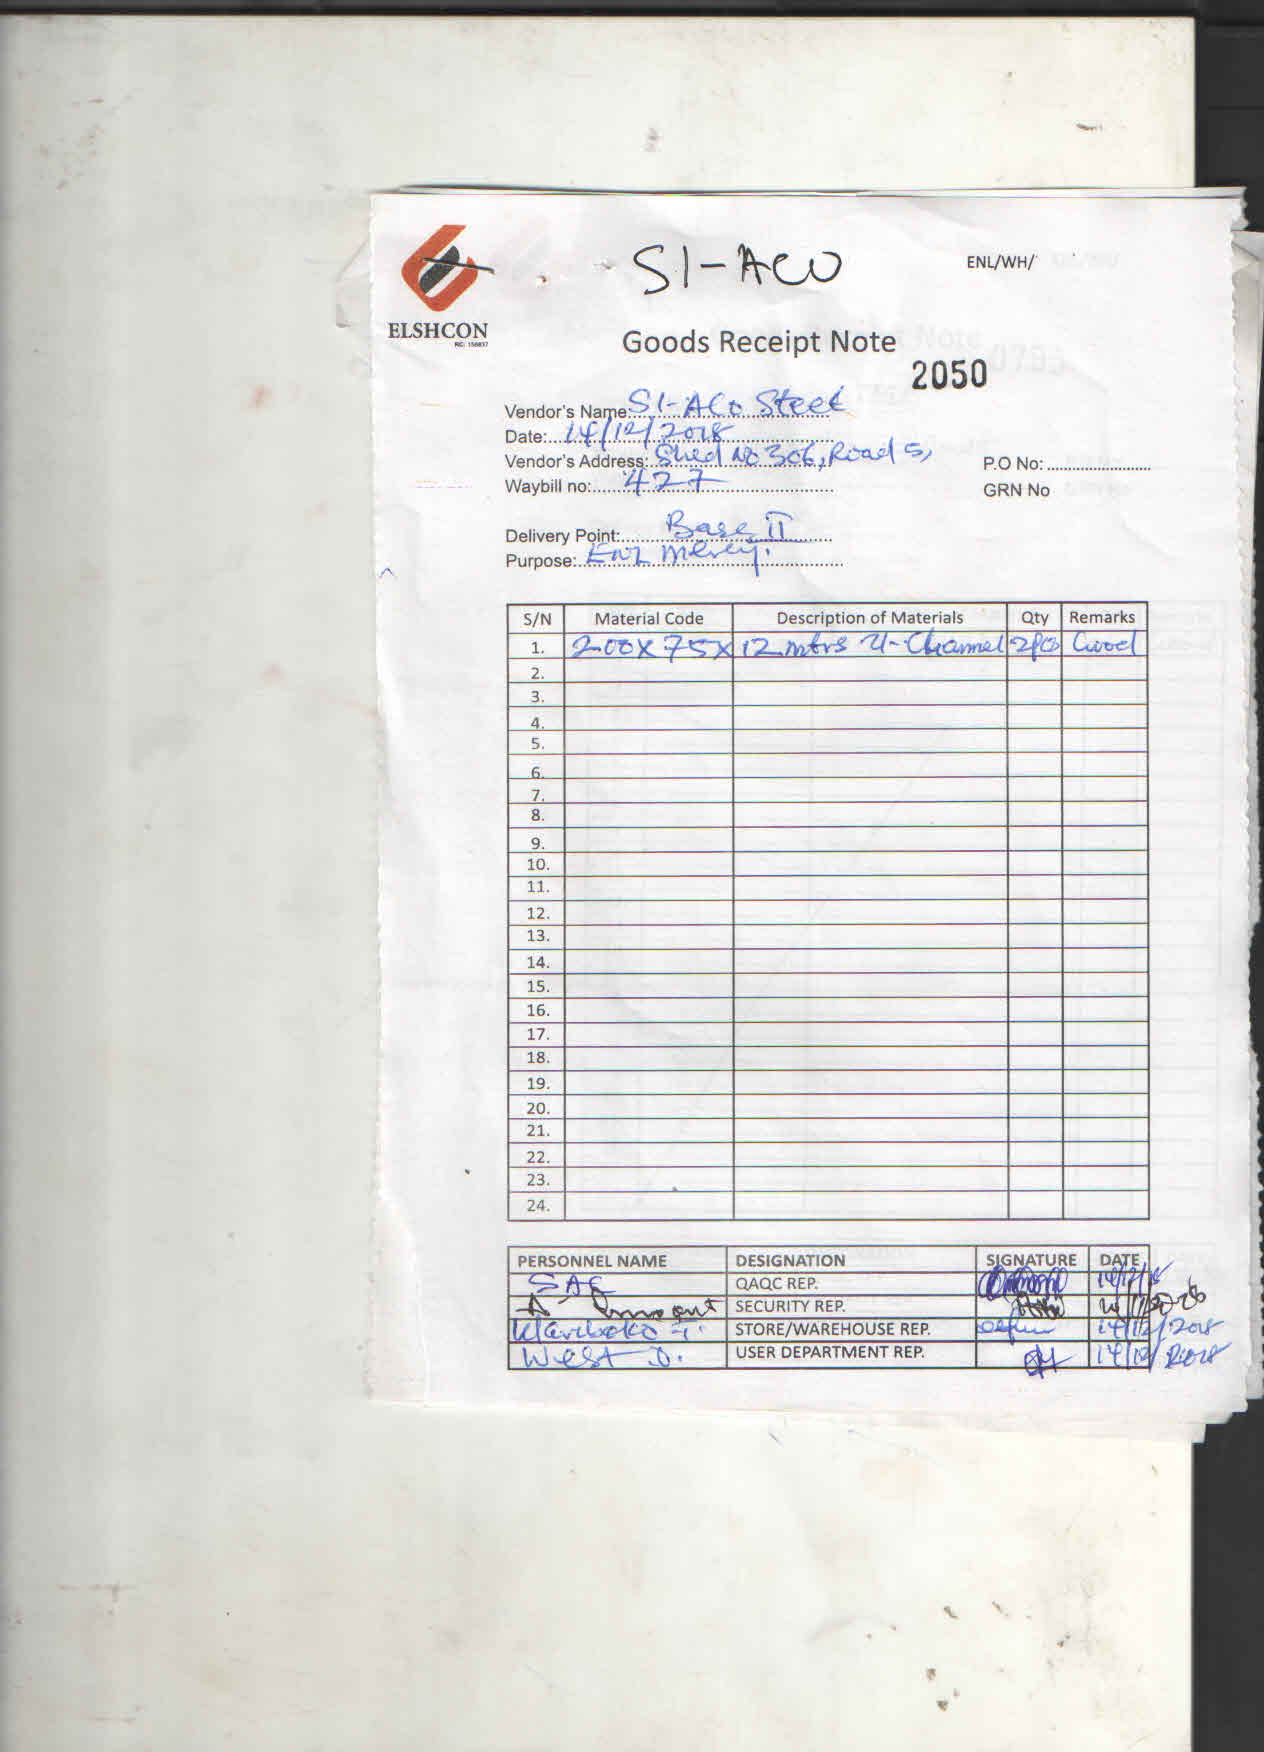 SI-ACO
ENL/WH/
ELSHCON
RC: 156837
Goods Receipt Note
2050
Vendor's Name: SI-ACO Steel
Date: 14/12/2018
Vendor's Address: Shed No 306, Road 5,
P.O No:
Waybill no: 427
GRN No
Delivery Point: Base II
Purpose: ENL Mercy.
S/N Material Code Description of Materials Qty Remarks
1. 200 x 75 x 12 mtrs U-Channel 2pcs Good
2.
3.
4.
5.
6.
7.
8.
9.
10.
11.
12.
13.
14.
15.
16.
17.
18.
19.
20.
21.
22.
23.
24.
PERSONNEL NAME DESIGNATION SIGNATURE DATE
QAQC REP. 14/12/18
SECURITY REP.
STORE/WAREHOUSE REP. 14/12/2018
West D. USER DEPARTMENT REP. 14/12/2018